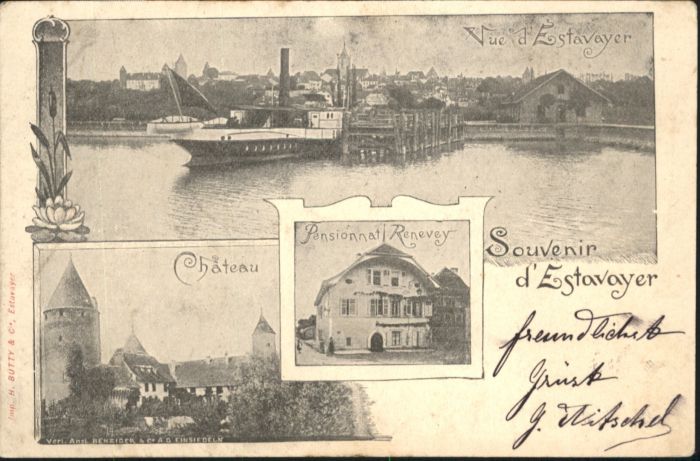 Vue d'Estavayer
Pensionnat Renevey
Château
Souvenir
d'Estavayer
freundlichst
Grüsst
Imp. H. BUTTY & Cie, Estavayer
Verl. Anst. BENZIGER & Co A.G. EINSIEDELN